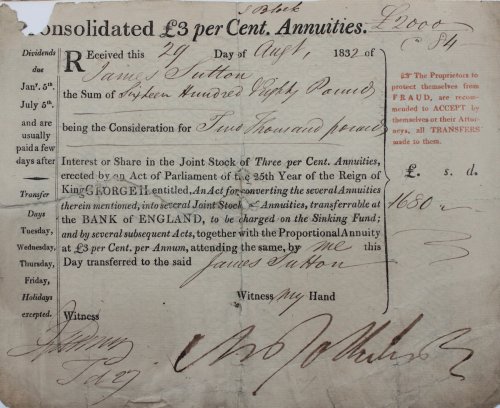 Block
Consolidated £3 per Cent. Annuities.
£2000
@ 84
Dividends
due
Jany. 5th.
July 5th.
and are
usually
paid a few
days after
Transfer
Days
Tuesday,
Wednesday,
Thursday,
Friday,
Holidays
excepted.
Received this 29 Day of Augt, 1832 of
James Sutton
the Sum of Sixteen Hundred & Eighty Pounds
being the Consideration for Two Thousand pounds
Interest or Share in the Joint Stock of Three per Cent. Annuities,
erected by an Act of Parliament of the 25th Year of the Reign of
King GEORGE II entitled, An Act for converting the several Annuities
therein mentioned, into several Joint Stock of Annuities, transferrable at
the BANK of ENGLAND, to be charged on the Sinking Fund;
and by several subsequent Acts, together with the Proportional Annuity
at £3 per Cent. per Annum, attending the same, by me this
Day transferred to the said James Sutton
Witness my Hand
Witness
The Proprietors to
protect themselves from
FRAUD, are recom-
mended to ACCEPT by
themselves or their Attor-
neys, all TRANSFERS
made to them.
£. s. d.
1680